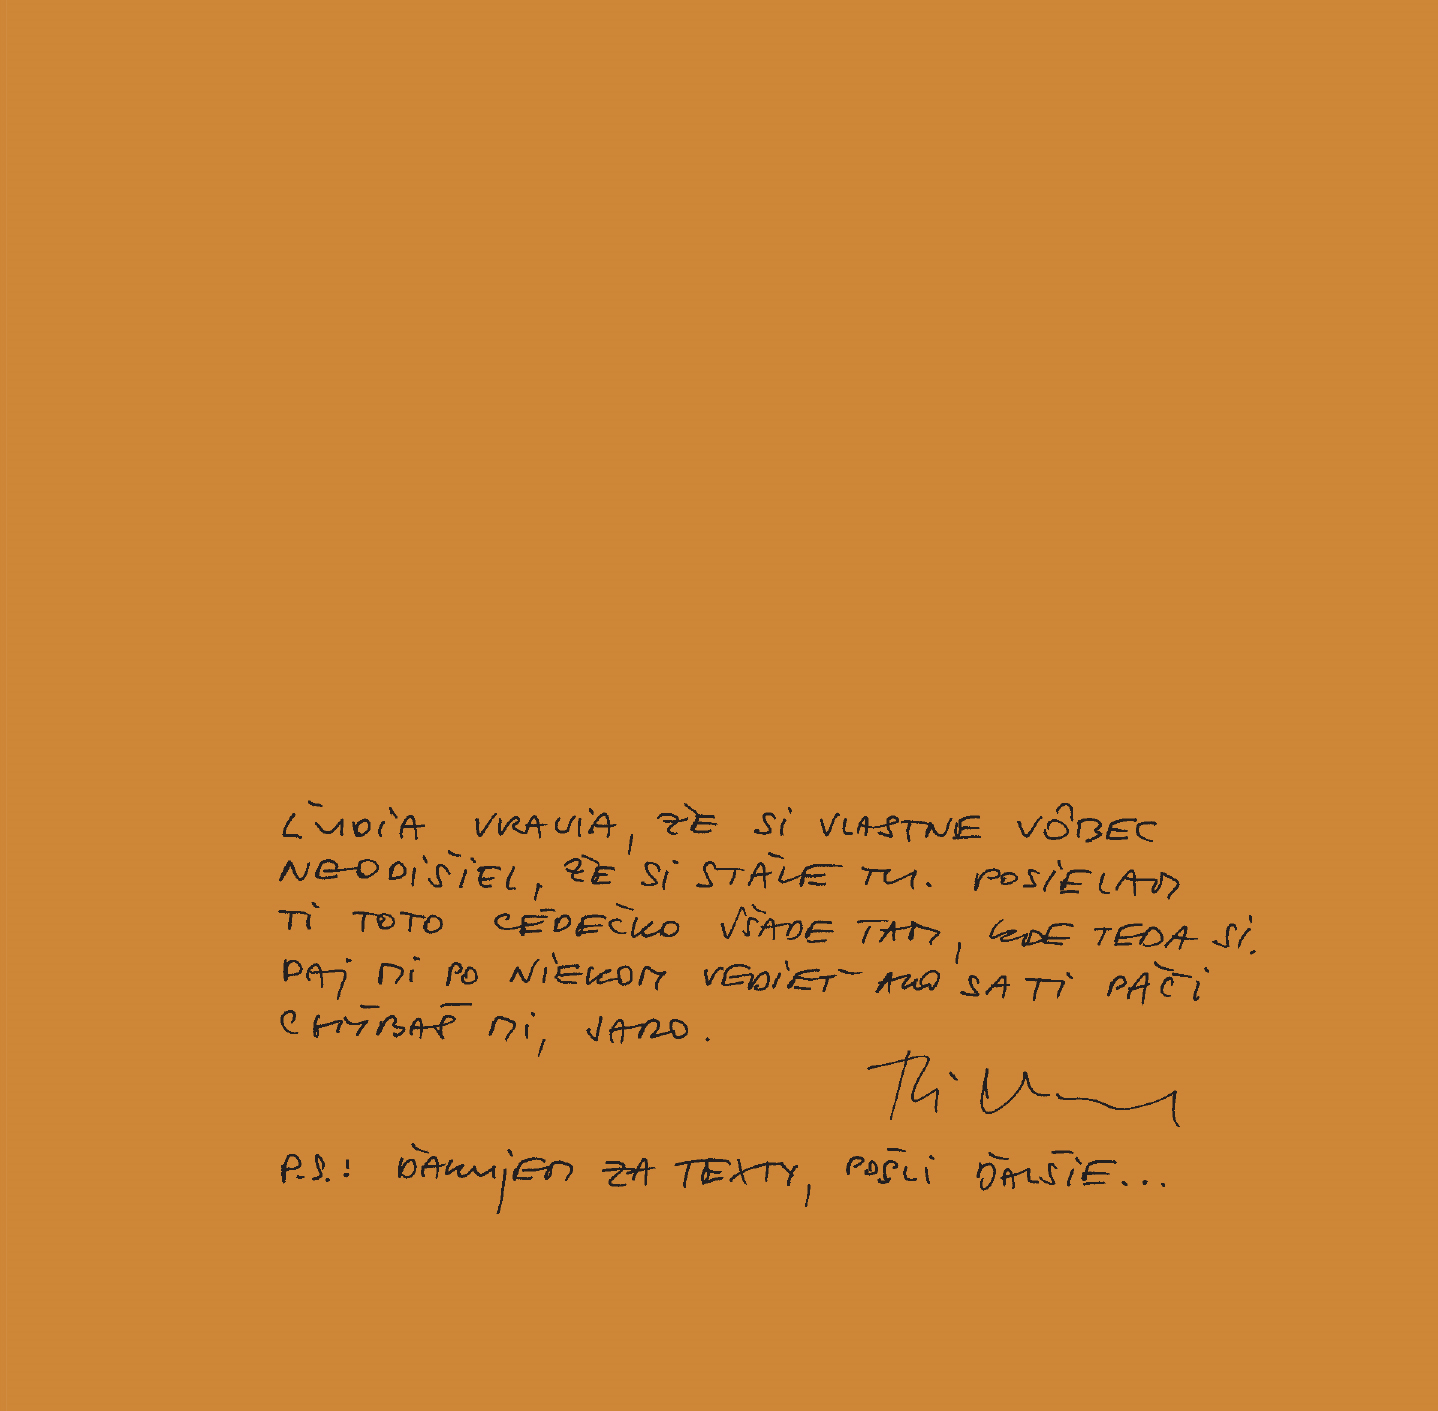 ĽUDIA VRAVIA, ŽE SI VLASTNE VÔBEC
NEODIŠIEL, ŽE SI STÁLE TU. POSIELAM
TI TOTO CÉDEČKO VŠADE TAM, KDE TEDA SI.
DAJ MI PO NIEKOM VEDIEŤ AKO SA TI PÁČI
CHÝBAŠ MI, JARO.
P.S.: ĎAKUJEM ZA TEXTY, POŠLI ĎALŠIE...